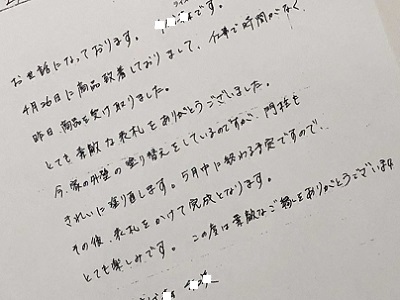 です。
お世話になっております。
4月26日に商品到着しておりまして、仕事で時間がなく、
昨日、商品を受け取りました。
とても素敵な表札をありがとうございました。
今、家の外壁の塗り替えをしているのですが、門柱も
きれいに塗り直します。5月中に終わる予定ですので、
その後、表札をかけて完成となります。
とても楽しみです。この度は素敵なご縁をありがとうございます